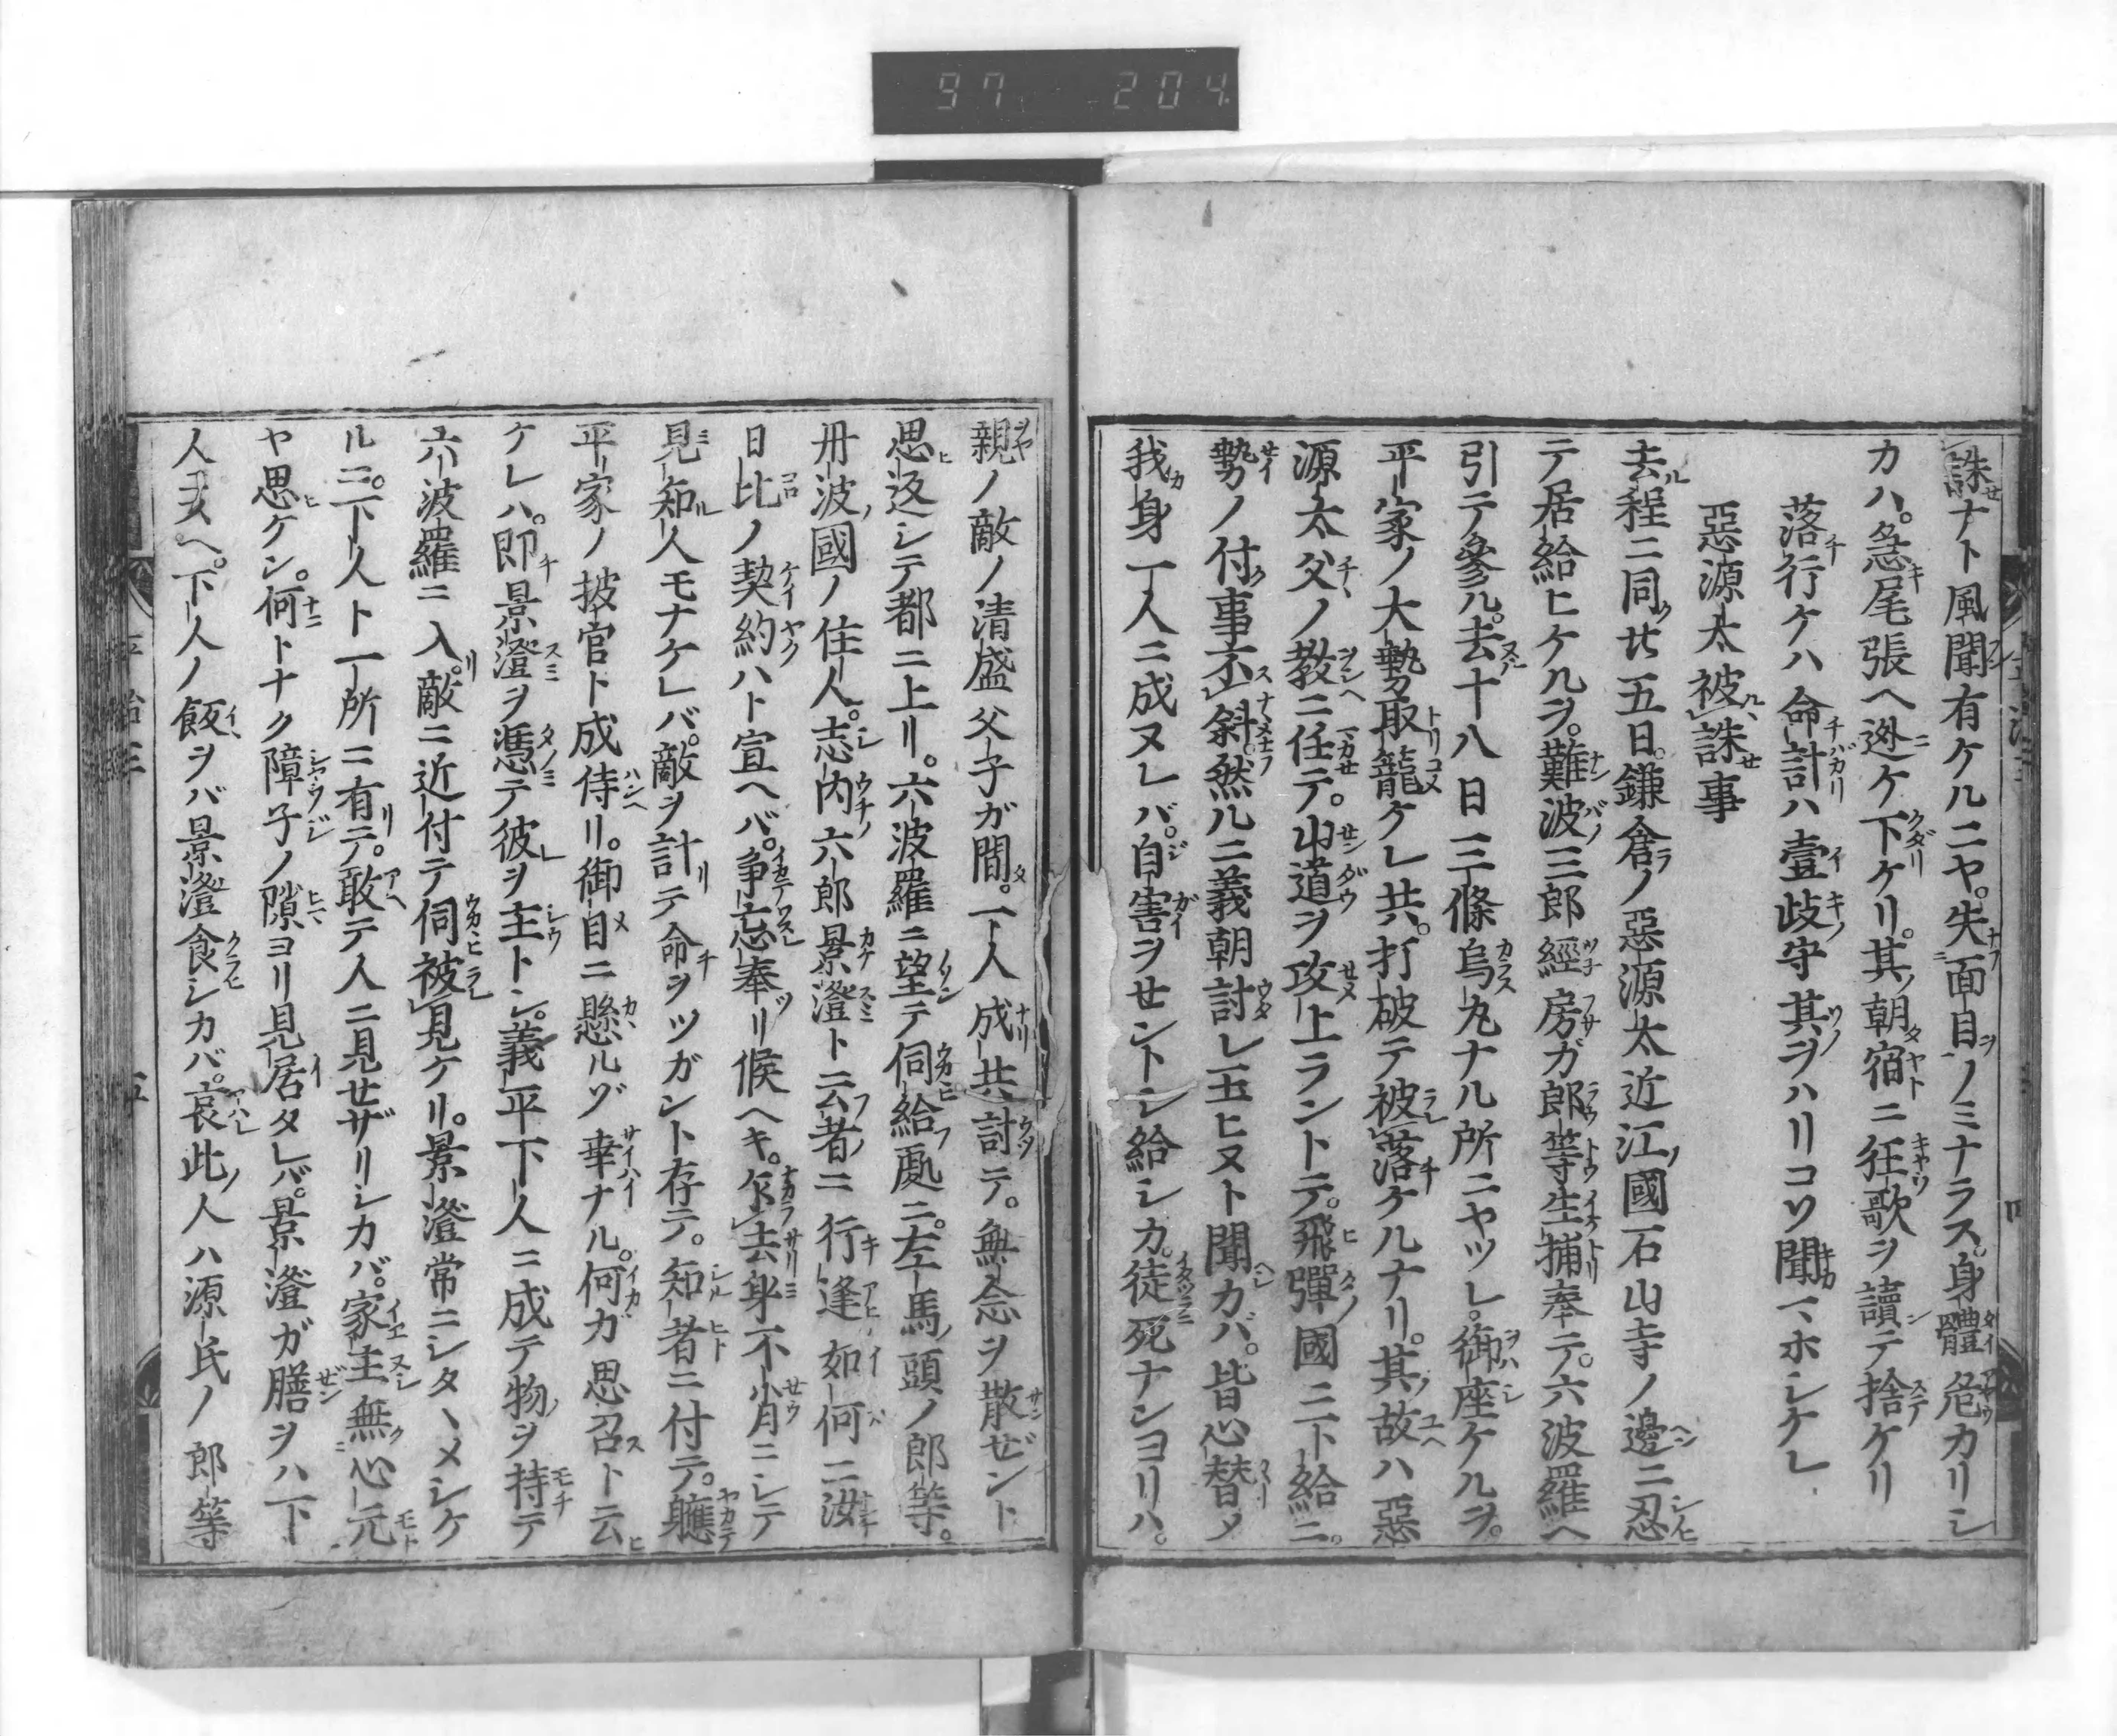 97 204
誅ナト風聞有ケルニヤ。失面目ノミナラス。身體危カリシ
カハ。急尾張ヘ迯ケ下ケリ。其朝宿ニ狂歌ヲ讀テ捨ケリ
落行ケハ命計ハ壹岐守其ヲハリコソ聞マホシケレ
惡源太被誅事
去程ニ同廿五日。鎌倉ノ惡源太近江國石山寺ノ邊ニ忍
テ居給ヒケルヲ。難波三郎經房ガ郎等生捕奉テ。六波羅ヘ
引テ參ル。去十八日三條烏丸ナル所ニヤツレ。御座ケルヲ。
平家ノ大勢取籠ケレ共。打破テ被落ケルナリ。其故ハ惡
源太父ノ教ニ任テ。山道ヲ攻上ラントテ。飛彈國ニ下給ニ。
勢ノ付事不斜。然ルニ義朝討レ玉ヒヌト聞カバ。皆心替メ
我身一人ニ成ヌレバ。自害ヲセントシ給シカ。徒死ナンヨリハ。
親ノ敵ノ清盛父子ガ間。一人成共討テ。無念ヲ散ゼント
思返シテ都ニ上リ。六波羅ニ望テ伺給處ニ。左馬頭ノ郎等。
丹波國ノ住人。志内六郎景澄ト云者ニ行逢如何ニ汝
日比ノ契約ハト宣ヘバ。爭忘奉リ候ヘキ。乍去身不肖ニシテ
見知人モナケレバ。敵ヲ計テ命ヲツガント存テ。知者ニ付テ。軈
平家ノ披官ト成侍リ。御目ニ懸ルゾ幸ナル。何ガ思召ト云
ケレハ。即景澄ヲ憑テ彼ヲ主トシ。義平下人ニ成テ物ヲ持テ
六波羅ニ入。敵ニ近付テ伺被見ケリ。景澄常ニシタヽメシケ
ル三。下人ト一所ニ有テ。敢テ人ニ見セザリシカバ。家主無心元
ヤ思ケン。何トナク障子ノ隙ヨリ見居タレバ。景澄ガ膳ヲハ下
人ニスヘ。下人ノ飯ヲバ景澄食シカバ。哀此人ハ源氏ノ郎等
平治三
五